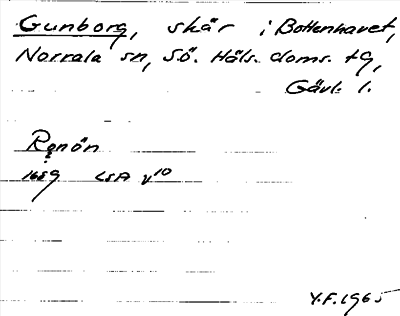 Gunborg, skär i Bottenhavet,
Norrala sn, Sö. Häls. doms. tg,
Gävl. l.
Renön
1659 LSA v10
Y.F. 1965